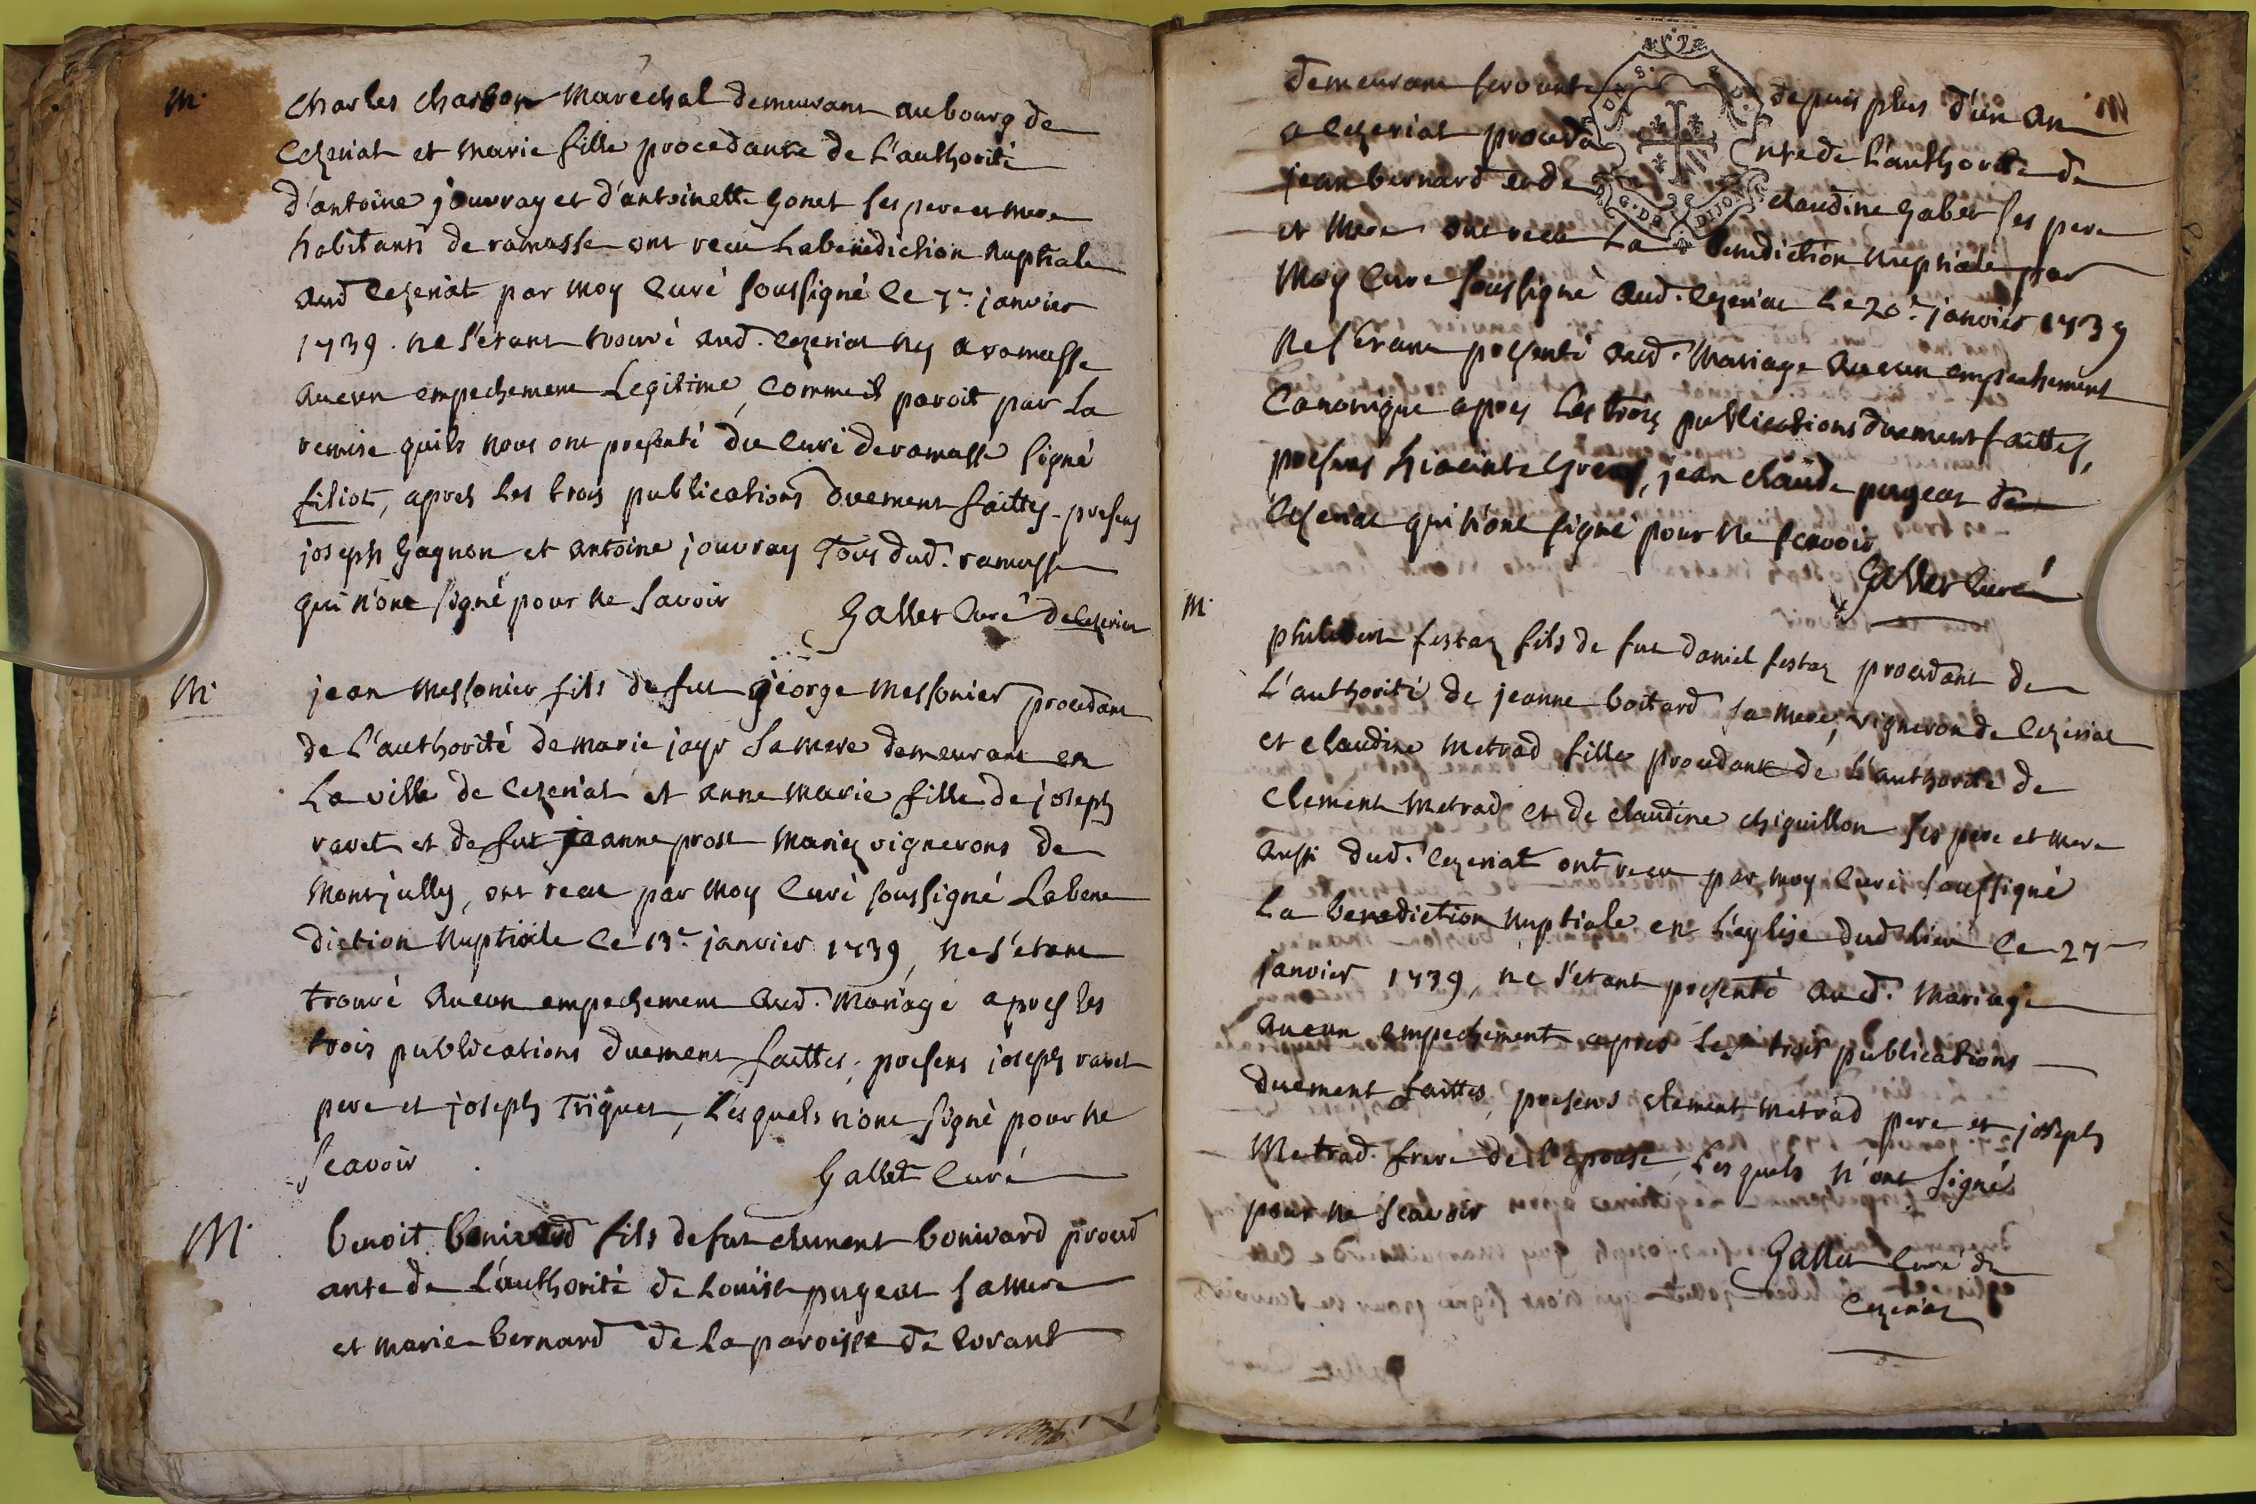 M.
Charles Charbon Marechal demeurant au bourg de
Cezeriat et Marie fille procedante de l'authorité
d'antoine jouvray et d'antoinette Gonet ses pere et mere
habitants de ramasse ont recu la benediction nuptiale
aud Cezeriat par moy Curé soussigné le 7e. janvier
1739. ne s'etant trouvé aud. Cezeriat ny a ramasse
aucun empechement Legitime, comme il paroit par la
remise quils nous ont presenté du Curé de ramasse signé
filiot, apres les trois publications duement faittes - presens
joseph Gagnon et antoine jouvray Tous dud. ramasse
qui n'ont signé pour ne savoir
Gallet Curé de Cezeriat
M.
jean Messonier fils de fut george Messonier procedant
de l'authorité de marie jayr sa mere demeurant en
La ville de Cezeriat et anne Marie fille de joseph
ravet et de fut jeanne prost Mariez vignerons de
Montjully, ont recu par moy Curé soussigné La bene
diction Nuptiale le 13e. janvier 1739, ne s'etant
trouvé aucun empechement aud. Mariage apres les
trois publications duement faittes, presens joseph ravet
pere et joseph Triquet, Lesquels n'ont signé pour ne
scavoir
Gallet Curé
M.
benoit bonivard fils de fut clement bonivard proced
ante de l'authorité de Louise pugeat sa mere
et marie bernard de la paroisse de Corant
demeurant servante depuis plus d'un an
a Cezeriat proceda nte de l'authorité de
jean bernard et de claudine Gabet ses pere
et mere ont recu La benediction nuptiale par
Moy Curé soussigné aud. Cezeriat le 20e. janvier 1739
Ne s'etant presenté aud. Mariage aucun empechement
Canonique apres les trois publications duement faittes,
presens hiacinte jean claude pugeat de
Cezeriat qui n'ont signé pour ne scavoir
Gallet Curé
M.
philibert festaz fils de fut daniel festaz procedant de
L'authorité de jeanne boitard sa mere, vigneron de Cezeriat
et claudine Metrad fille procedante de l'authorité de
Clement Metrad et de claudine chiquillon ses pere et mere
aussi dud. Cezeriat ont recu par moy Curé soussigné
La benediction Nuptiale en l'eglise dud lieu le 27
janvier 1739, ne s'etant presenté aud. Mariage
aucun empechement apres les trois publications
duement faittes, presens clement Metrad pere et joseph
Metrad frere de l'epouse, Lesquels n'ont signé
pour ne scavoir
Gallet Curé de
Cezeriat